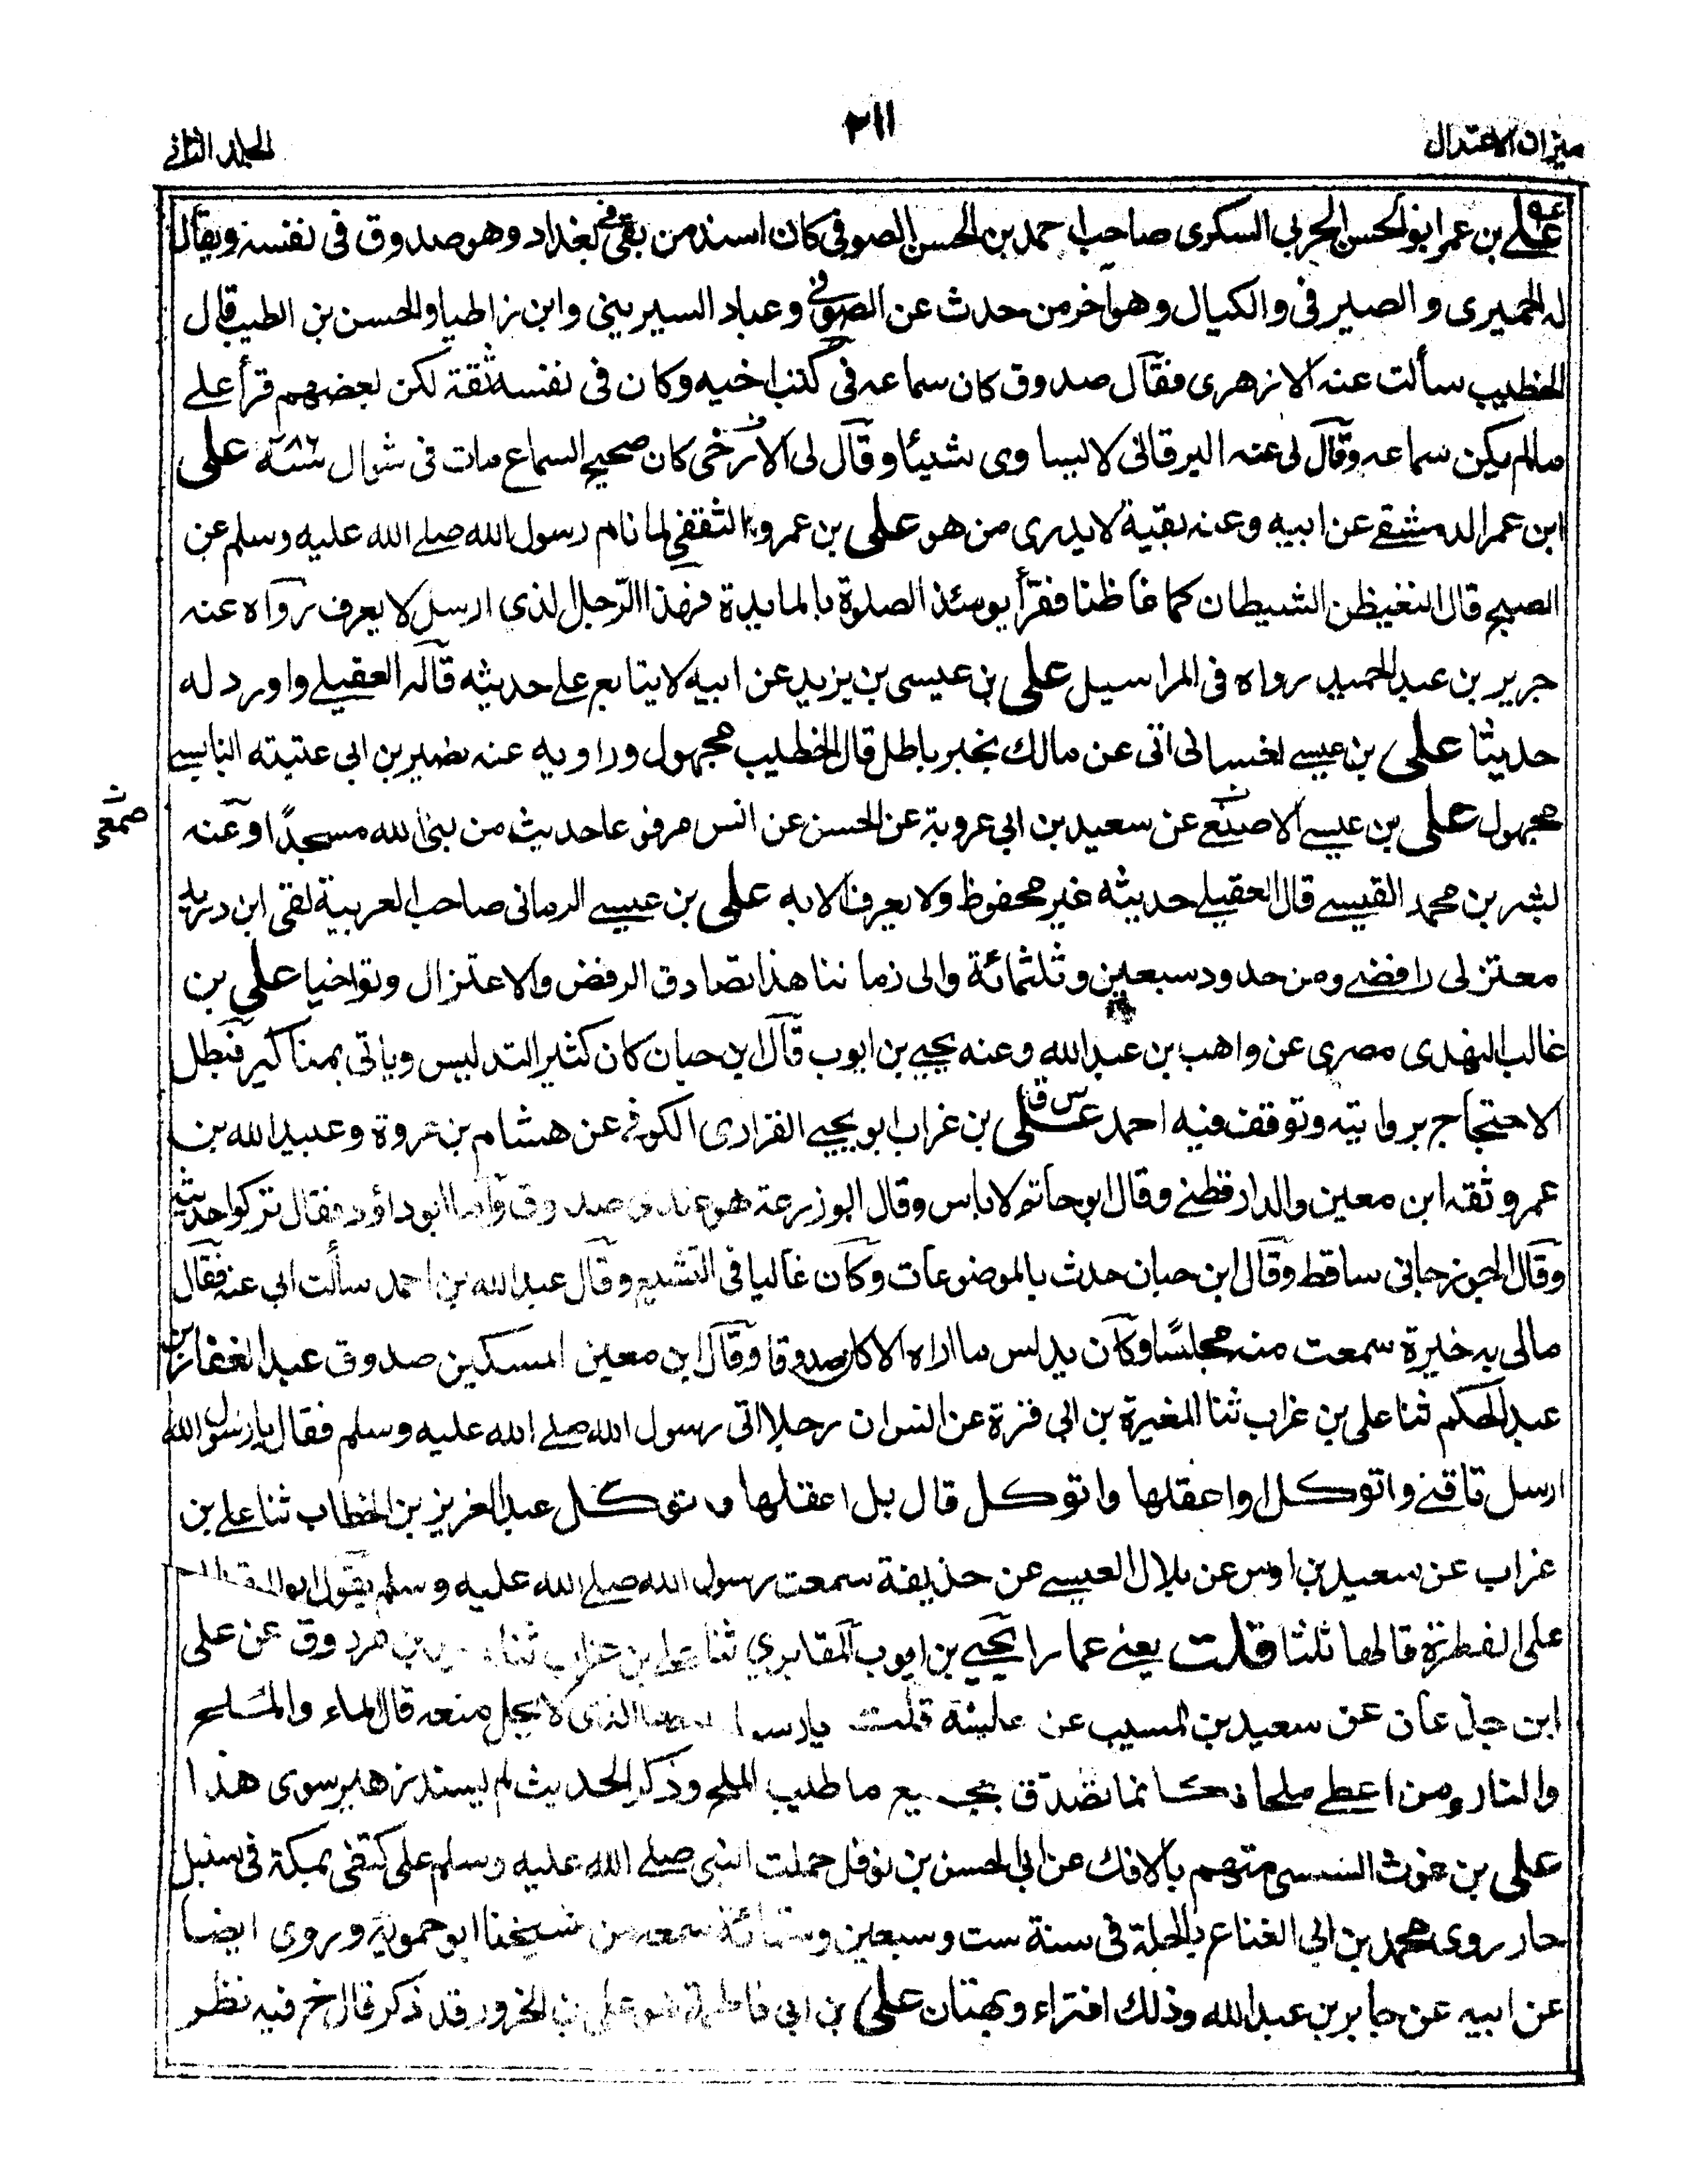 ميزان الاعتدال
٢١١
الجلد الثانى
على بن عمر ابو الحسن الحربى السكرى صاحب احمد بن الحسن الصوفى كان اسند من بقى ببغداد وهو صدوق فى نفسه ويقال
له الحميرى و الصيرفى والكيال وهو آخر من حدث عن الصوفى وعباد السيرينى وابن زاطيا والحسن بن الطيب قال
الخطيب سألت عنه الازهرى فقال صدوق كان سماعه فى كتب اخيه وكان فى نفسه ثقة لكن بعضهم قرأ على
مالم يكن سماعه وقال لى عنه البرقانى لا يساوى شيئا وقال لى الازجى كان صحيح السماع مات فى شوال سنة على
ابن عمر الدمشقى عن ابيه وعنه بقية لا يدرى من هو على بن عمرو الثقفى لما نام رسول الله صلى الله عليه وسلم عن
الصبح قال لنغيظن الشيطان كما غاظنا فقرأ يومئذ الصلوة بالمايدة فهذا الرجل الذى ارسل لا يعرف رواه عنه
جرير بن عبد الحميد رواه فى المراسيل على بن عيسى بن يزيد عن ابيه لا يتابع على حديثه قاله العقيلى واورد له
حديثا على بن عيسى الغسانى اتى عن مالك بخبر باطل قال الخطيب مجهول وراويه عنه نصير بن ابى عتبته البالسى
مجهول على بن عيسى الاصمعى عن سعيد بن ابى عروبة عن الحسن عن انس مرفوعا حديث من بنى لله مسجدًا وعنه
بشر بن محمد القيسى قال العقيلى حديثه غير محفوظ ولا يعرف الا به على بن عيسى الرمانى صاحب العربية لقى ابن دريد
معتزلى رافضى ومن حدود سبعين وثلثمائة والى زماننا هذا تصادق الرفض والاعتزال وتواخيا على بن
غالب الفهدى مصرى عن واهب بن عبد الله وعنه يحيى بن ايوب قال ابن حبان كان كثير التدليس وياتى بمناكير فبطل
الاحتجاج بروايته وتوقف فيه احمد على س ق بن غراب ابو يحيى الفزارى الكوفى عن هشام بن عروة وعبيد الله بن
عمر وثقه ابن معين والدارقطنى وقال ابو حاتم لا باس وقال ابو زرعة هو عندى صدوق واما ابو داؤد فقال تركوا حديثه
وقال الجوزجانى ساقط وقال ابن حبان حدث بالموضوعات وكان غاليا فى التشيع وقال عبد الله بن احمد سألت ابى عنه فقال
مالى به خبرة سمعت منه مجلسًا وكان يدلس ما اراه الا كان صدوقا وقال ابن معين المسكين صدوق عبد الغفار بن
عبد الحكم ثنا على بن غراب ثنا المغيرة بن ابى قرة عن انس ان رجلا اتى رسول الله صلى الله عليه وسلم فقال يا رسول الله
ارسل ناقتى واتوكل او اعقلها واتوكل قال بل اعقلها وتوكل عبد العزيز بن الخطاب ثنا على بن
غراب عن سعيد بن اوس عن بلال العبسى عن حذيفة سمعت رسول الله صلى الله عليه وسلم يقول ابو اليقظان
على الفطرة قالها ثلثا قلت يعنى عمارا يحيى بن ايوب المقابرى ثنا على بن غراب ثنا بن مرزوق عن على
ابن جدعان عن سعيد بن المسيب عن عايشة قلت يا رسول الذى لا يحل منعه قال الماء والملح
والنار ومن اعطى ملحا فكانما تصدق بجميع ما طيب الملح وذكر الحديث لم يسند زهير سوى هذا
على بن غوث السبسى متهم بالافك عن ابى الحسن بن نوفل حملت النبى صلى الله عليه وسلم على كتفى بمكة فى سنبل
حار روى محمد بن ابى الغنائم بالحلة فى سنة ست وسبعين وستمائة سمعه من شيخنا ابو حمويه وروى ايضا
عن ابيه عن جابر بن عبد الله وذلك افتراء وبهتان على بن ابى فاطمة هو على بن الحزور قد ذكر قال خ فيه نظر